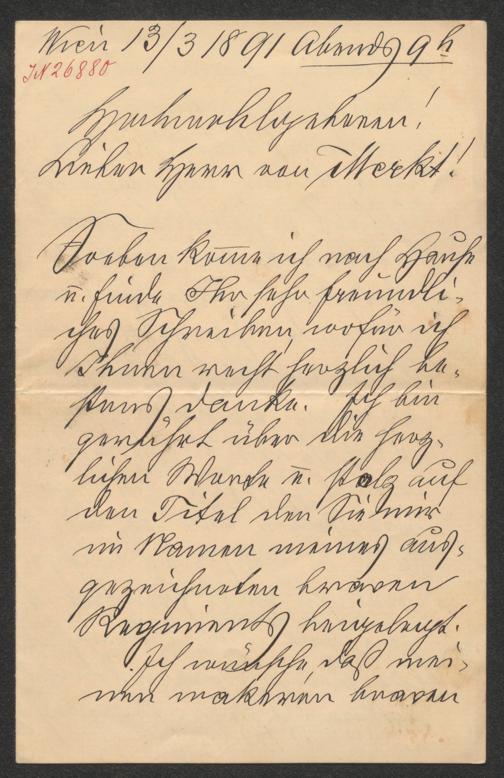 Wien 13/3 1891 Abends 9h
IN 26880
Hochwohlgeboren!
Lieber Herr von Merkt!
Soeben kom̅e ich nach Hause
u̅. finde Ihr sehr freundli-
ches Schreiben, wofür ich
Ihnen recht herzlich be-
stens danke. Ich bin
gerührt über die herz-
lichen Worte u̅. stolz auf
den Titel den Sie mir
im Namen meines aus-
gezeichneten braven
Regiments beigelegt.
Ich wünsche, daß mei-
nen wakeren braven